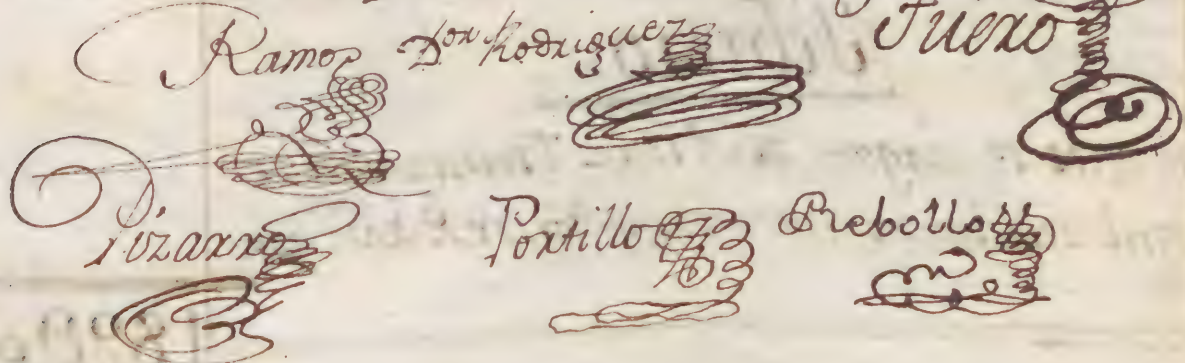 Ramos Dor Rodriguez Fuero
Pizarro Portillo Rebollo